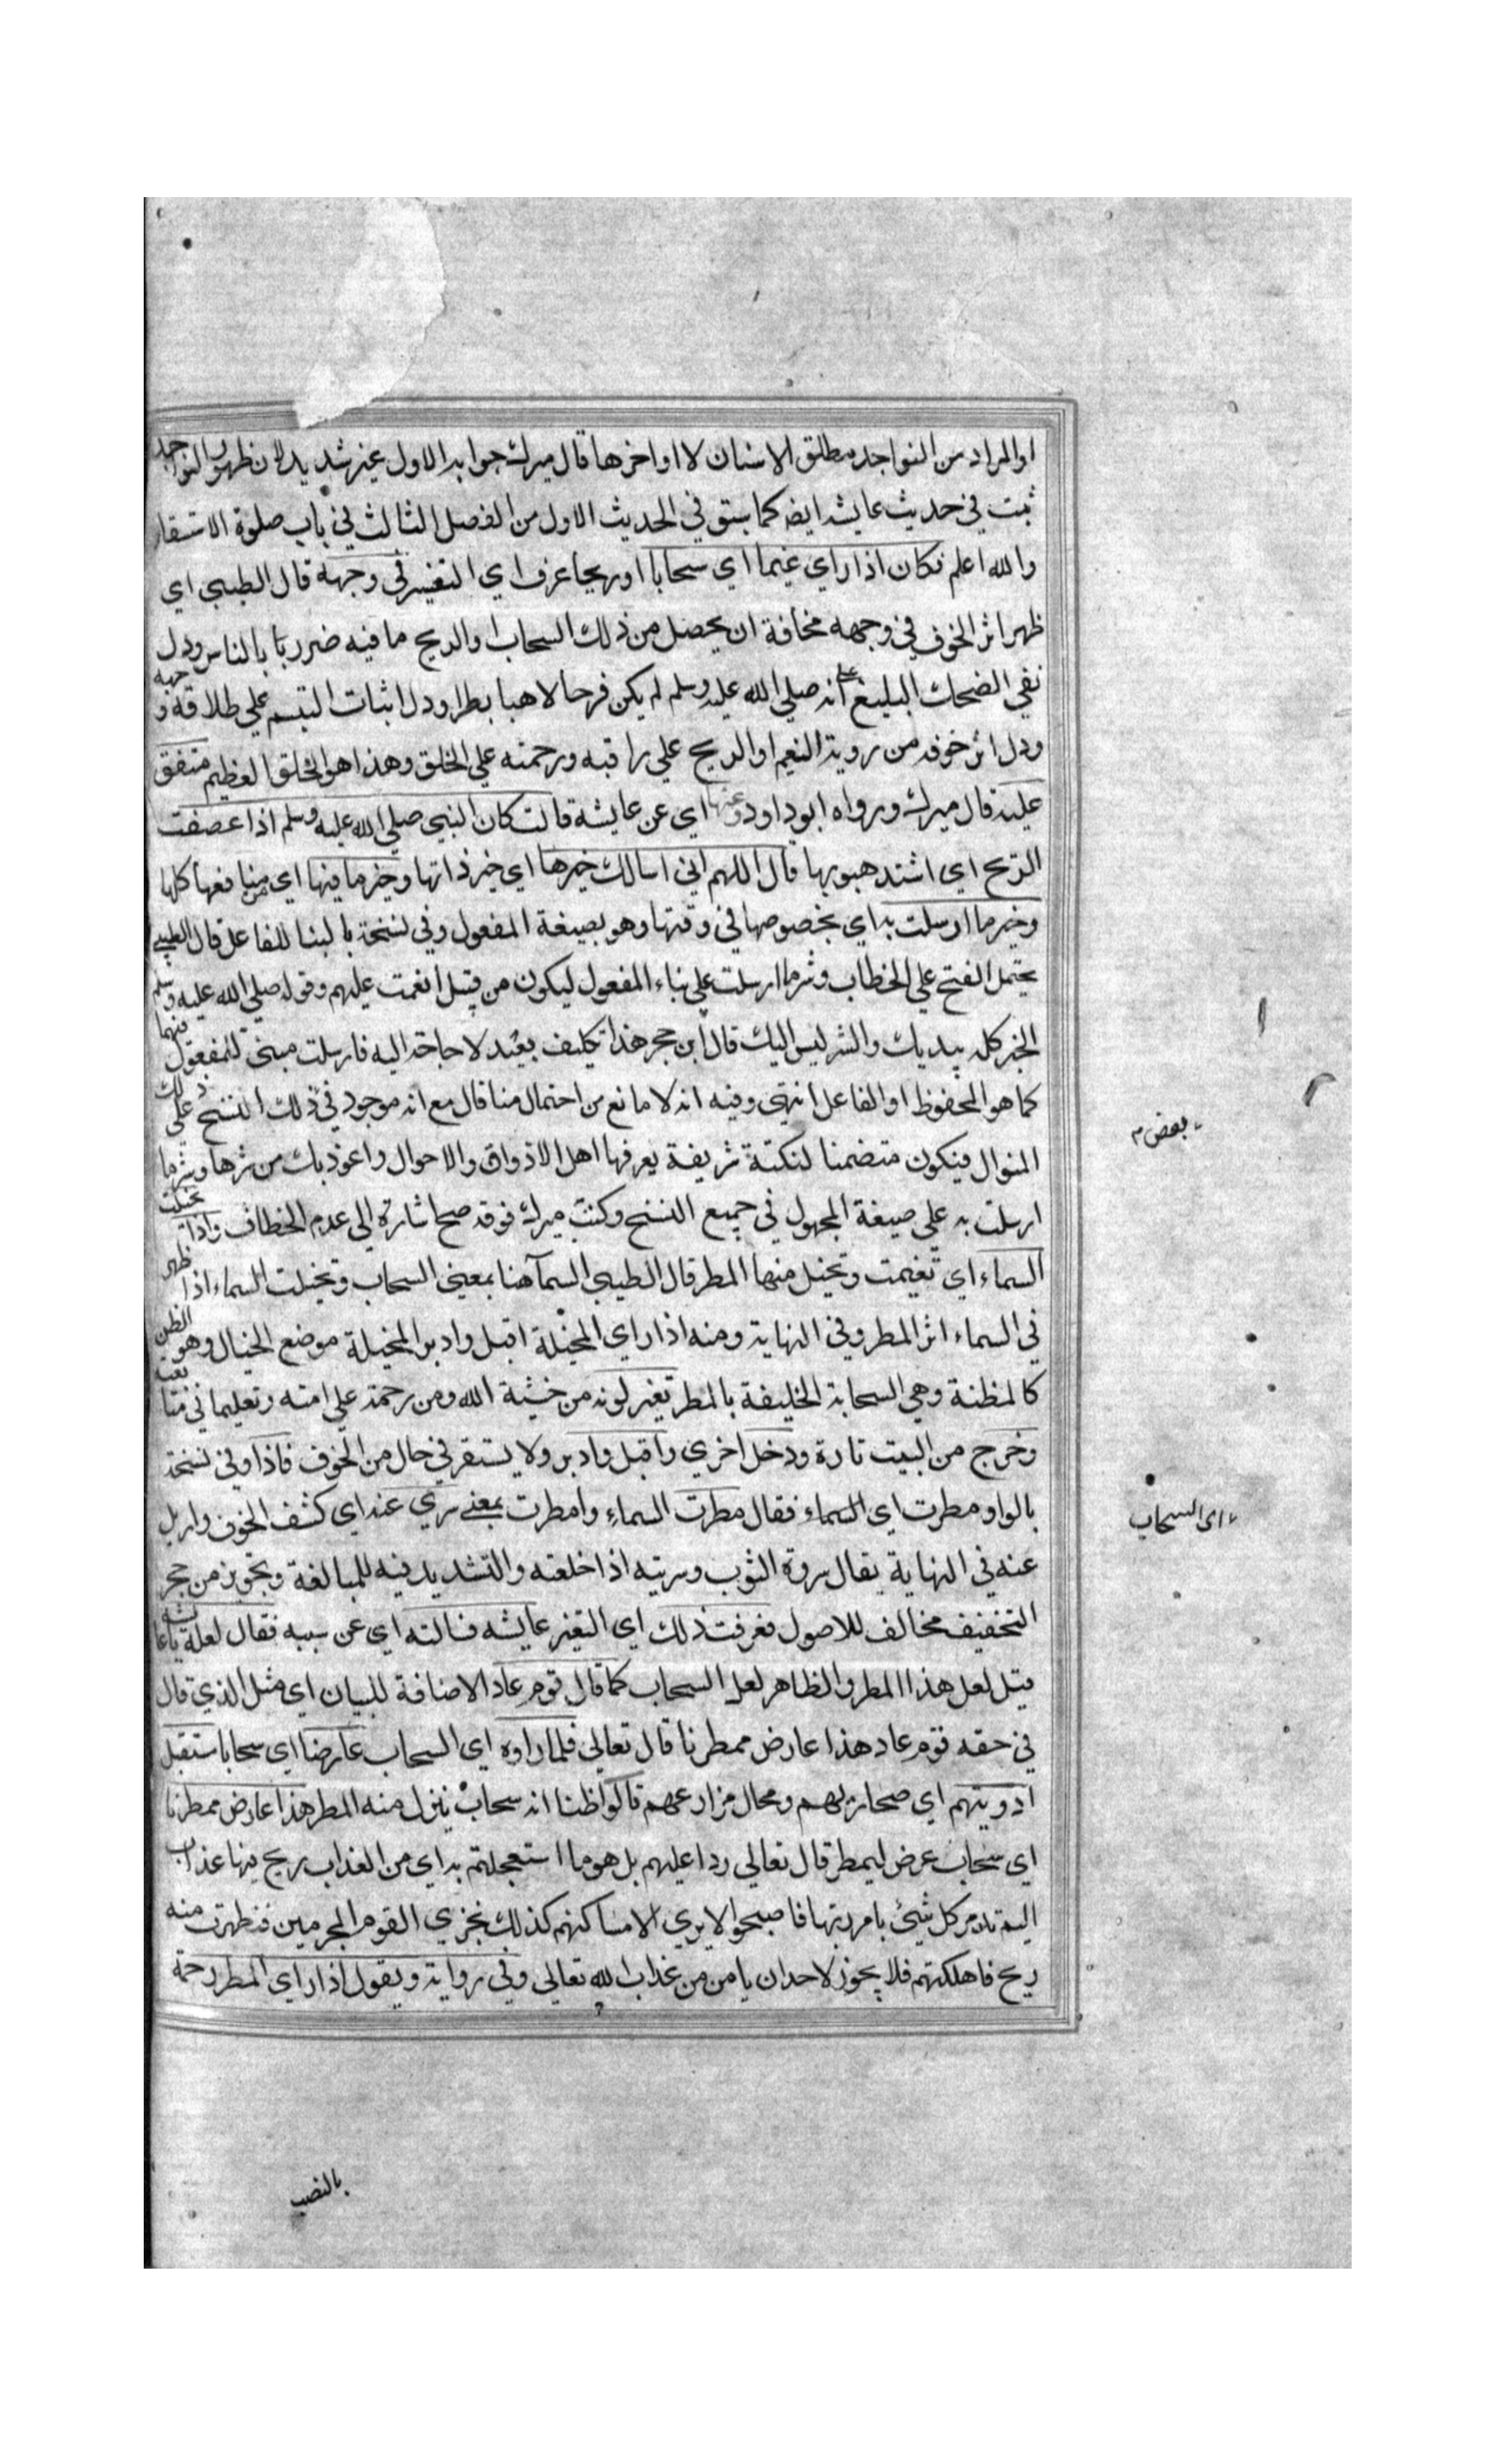 او المراد من النواجد مطلق الاسنان لا اواخرها قال ميرك جوابه الاول غير شديد لان ظهور النواجد
ثبت في حديث عايشه ايضه كما سبق في الحديث الاول من الفصل الثالث في باب صلوة الاستسقاء
والله اعلم فكان اذا راي غيما اي سحابا او ريحا عرف اي التغيير في وجهه قال الطيبي اي
ظهر اثر الخوف في وجهه مخافة ان يحصل من ذلك السحاب او الريح ما فيه ضرر بالناس ودل
نفي الضحك البليغ على انه صلي الله عليه وسلم لم يكن فرحا لاهيا بطرا ودل اثبات التبسم علي طلاقة وجهه
ودل اثر خوفه من روية الغيم او الريح علي رافته ورحمته علي الخلق وهذا هو الخلق العظيم متفق
عليه قال ميرك ورواه ابو داود وعنها اي عن عايشة قالت كان النبي صلي الله عليه وسلم اذا عصفت
الريح اي اشتد هبوبها قال اللهم اني اسالك خيرها اي خير ذاتها وخير ما فيها اي من منافعها كلها
وخير ما ارسلت به اي بخصوصها في وقتها وهو بصيغة المفعول وفي نسخة بالبنا للفاعل قال الطيبي
يحتمل الفتح علي الخطاب وشر ما ارسلت علي بناء المفعول ليكون من قبيل انعمت عليهم وقوله صلي الله عليه وسلم
الخير كله بيديك والشر ليس اليك قال ابن حجر هذا تكليف بعيد لا حاجة اليه فارسلت مبني للمفعول فيهما
كما هو المحفوظ او للفاعل انتهي وفيه انه لا مانع من احتمال ما قال مع انه موجود في ذلك النسخ على ذلك
المنوال فيكون متضمنا لنكتة شريفة يعرفها اهل الاذواق والاحوال واعوذ بك من شرها وشر ما
ارسلت به علي صيغة المجهول في جميع النسخ وكتب ميرك فوقه صح اشارة الي عدم الخطاف واذا تخيلت
السماء اي تغيمت وتخيل منها المطر قال الطيبي السمآ هنا بمعني السحاب وتخيلت السماء اذا ظهر
في السماء اثر المطر وفي النهاية ومنه اذا راي المخيلة اقبل وادبر المخيلة موضع الخيال وهو الظن
كالمظنة وهي السحابة الخليفة بالمطر تغير لونه من خشية الله ومن رحمته علي امته وتعليما في متابعته
وخرج من البيت تارة ودخل اخري واقبل وادبر ولا يستقر في حال من الخوف فاذا وفي نسخة
بالواو مطرت اي السماء فقال مطرت السماء وامطرت بمعني سري عنه اي كشف الخوف وازيل
عنه في النهاية يقال سروة الثوب وسريته اذا خلعته والتشديد فيه للمبالغة وتجويز من حجر
التخفيف مخالف للاصول فعرفت ذلك اي التغير عايشه فسالته اي عن سببه فقال لعله يا عايشة
قيل لعل هذا المطر والظاهر لعل السحاب كما قال قوم عاد الاضافة للبيان اي مثل الذي قال
في حقه قوم عاد هذا عارض ممطرنا قال تعالي فلما راوه اي السحاب عارضا اي سحابا مستقبل
اوديتهم اي صحاريهم ومحال مزارعهم قالوا ظنا انه سحاب ينزل منه المطر هذا عارض ممطرنا
اي سحاب عرض ليمطر قال تعالي ردا عليهم بل هو ما استعجلتم به اي من العذاب ريح فيها عذاب
اليم تدمر كل شيئ بامر ربها فاصبحوا لا يري الا مساكنهم كذلك نجزي القوم المجرمين فظهرت منه
ريح فاهلكتهم فلا يجوز لاحد ان يامن من عذاب الله تعالي وفي رواية ويقول اذا راي المطر رحمة
بعض م
اي السحاب
بالنصب